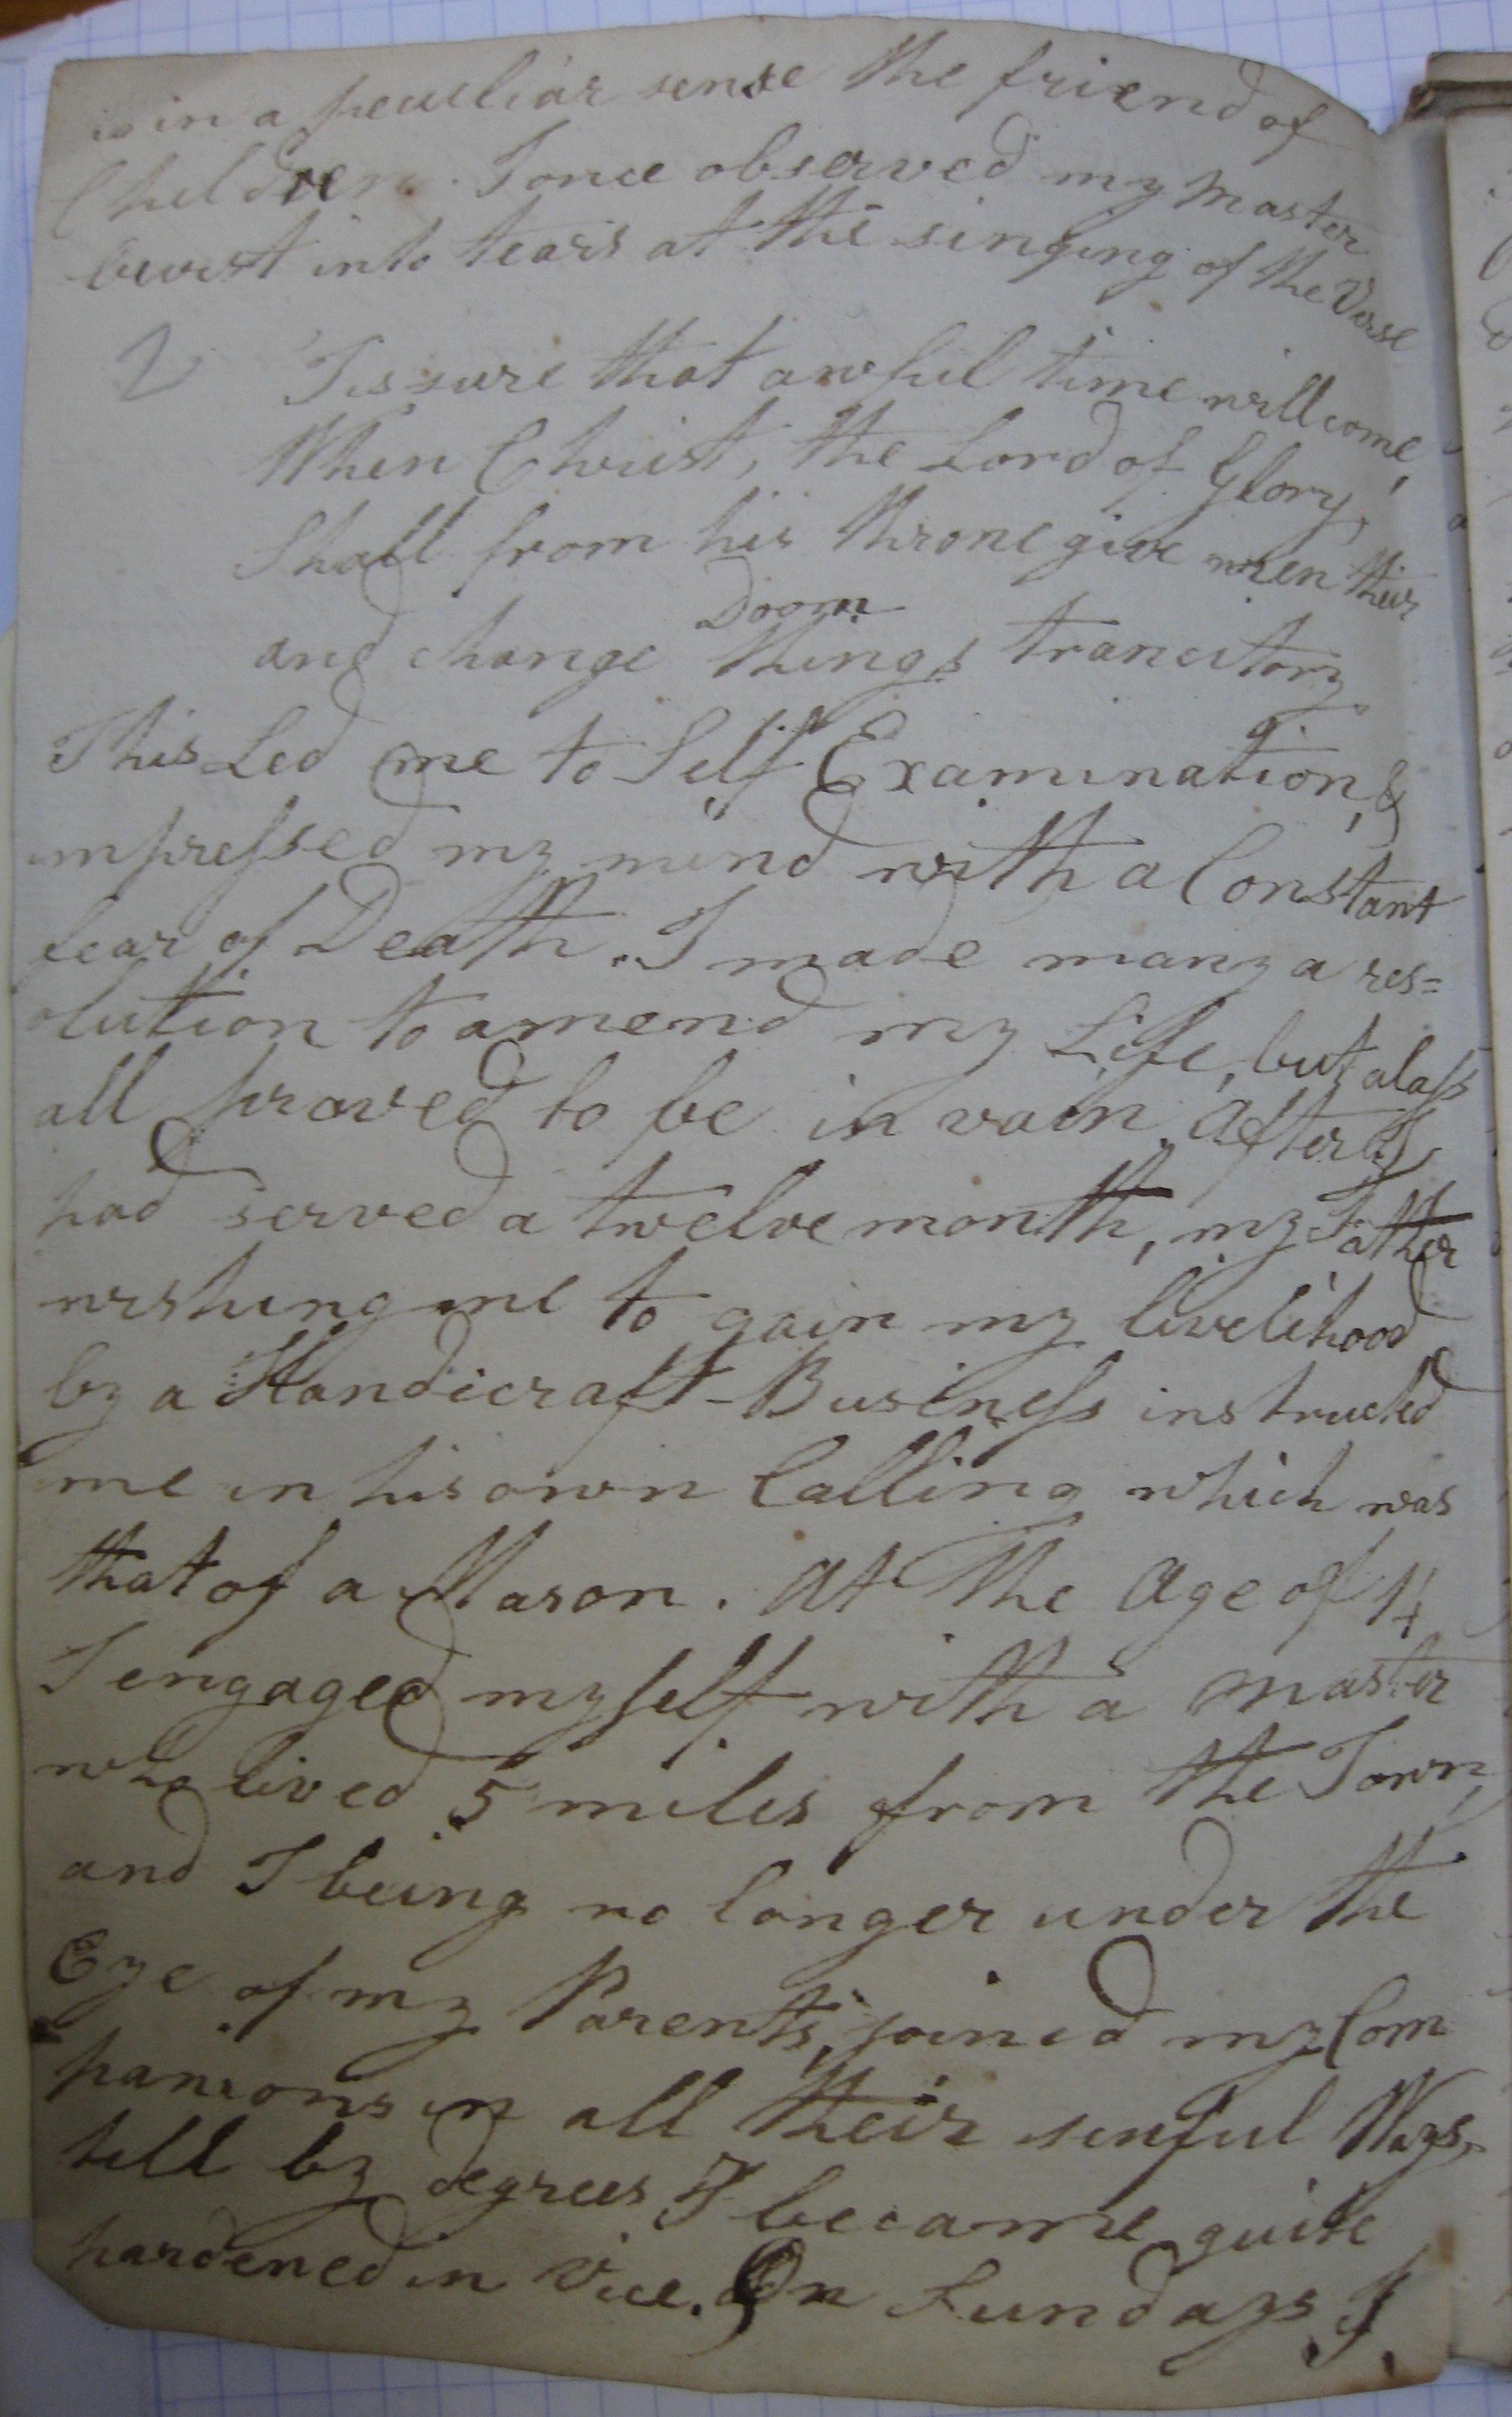 is in a peculiar sense the friend of
Children. I once observed my Master
burst into tears at the singing of the Verse
2 Tis sure that awful time will come,
When Christ, the Lord of Glory,
Shall from his throne give men their
Doom
and change things trancitory
This Led me to Self Examination, &
impressed my mind with a Constant
fear of Death. I made many a res=
olution to amend my Life, but alass
all proved to be in vain. After I
had served a twelve month, my Father
wishing me to gain my livelihood
by a Handicraft-Business instructed
me in his own Calling which was
that of a Mason. At the Age of 14
I engaged myself with a Master
who lived 5 miles from the Town,
and I being no longer under the
Eye of my Parents, joined my Com
panions in all their sinful Ways,
till by degrees I became quite
hardened in Vice. On Sundays I